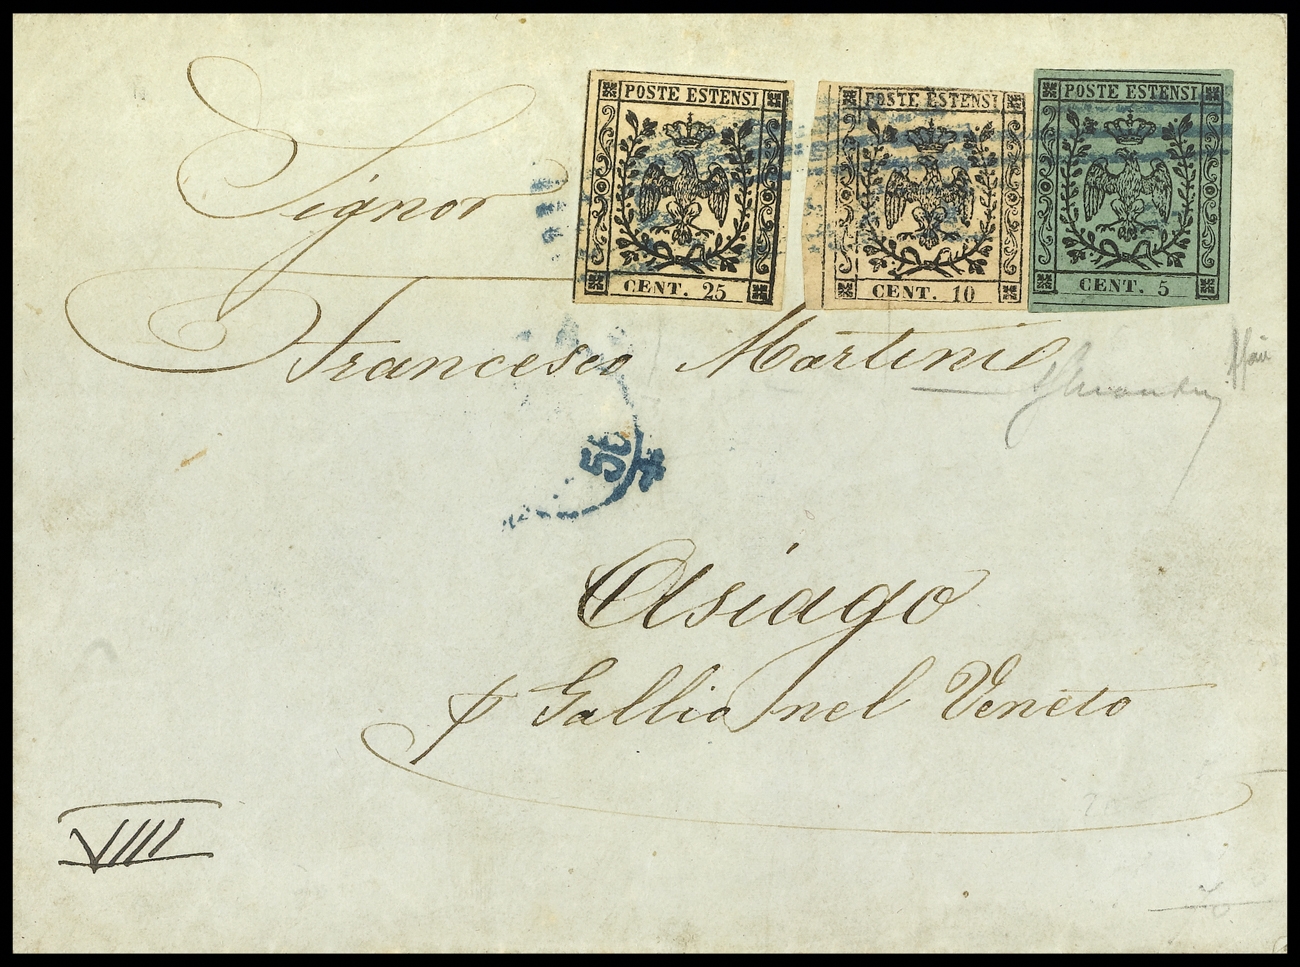 POSTE ESTENSI
CENT. 25
POSTE ESTENSI
CENT. 10
POSTE ESTENSI
CENT. 5
Signor
Francesco Martini
56
Asiago
p Gallio nel Veneto
VIIII